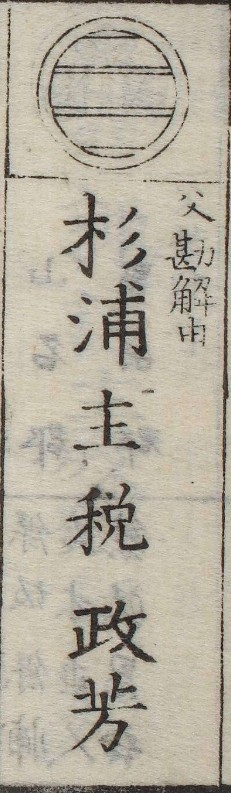 父勘解由
杉浦主税 政芳